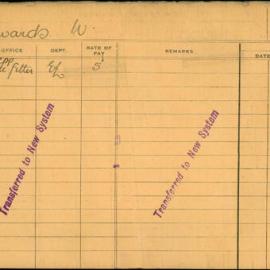 wards W.
OFFICE DEPT. RATE OF PAY REMARKS
Fitter EL 5
Transferred to New System Transferred to New System